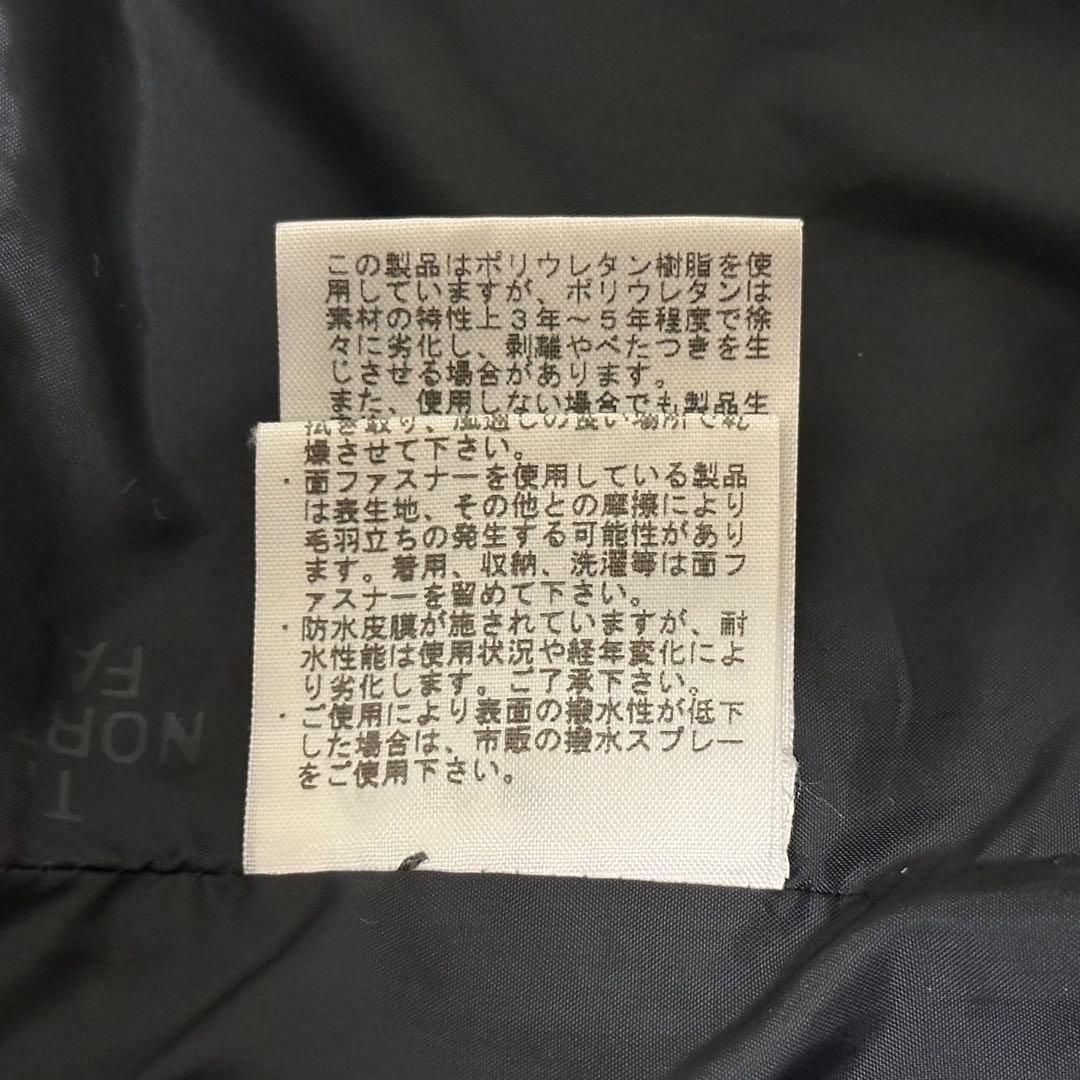 この製品はポリウレタン樹脂を使
用していますが、ポリウレタンは
素材の特性上3年〜5年程度で徐
々に劣化し、剥離やべたつきを生
じさせる場合があります。
また、使用しない場合でも製品生
拭き取り、風通しの良い場所で乾
燥させて下さい。
・面ファスナーを使用している製品
は表生地、その他との摩擦により
毛羽立ちの発生する可能性があり
ます。着用、収納、洗濯等は面フ
ァスナーを留めて下さい。
・防水皮膜が施されていますが、耐
水性能は使用状況や経年変化によ
り劣化します。ご了承下さい。
・ご使用により表面の撥水性が低下
した場合は、市販の撥水スプレー
をご使用下さい。
T
NOR
FA